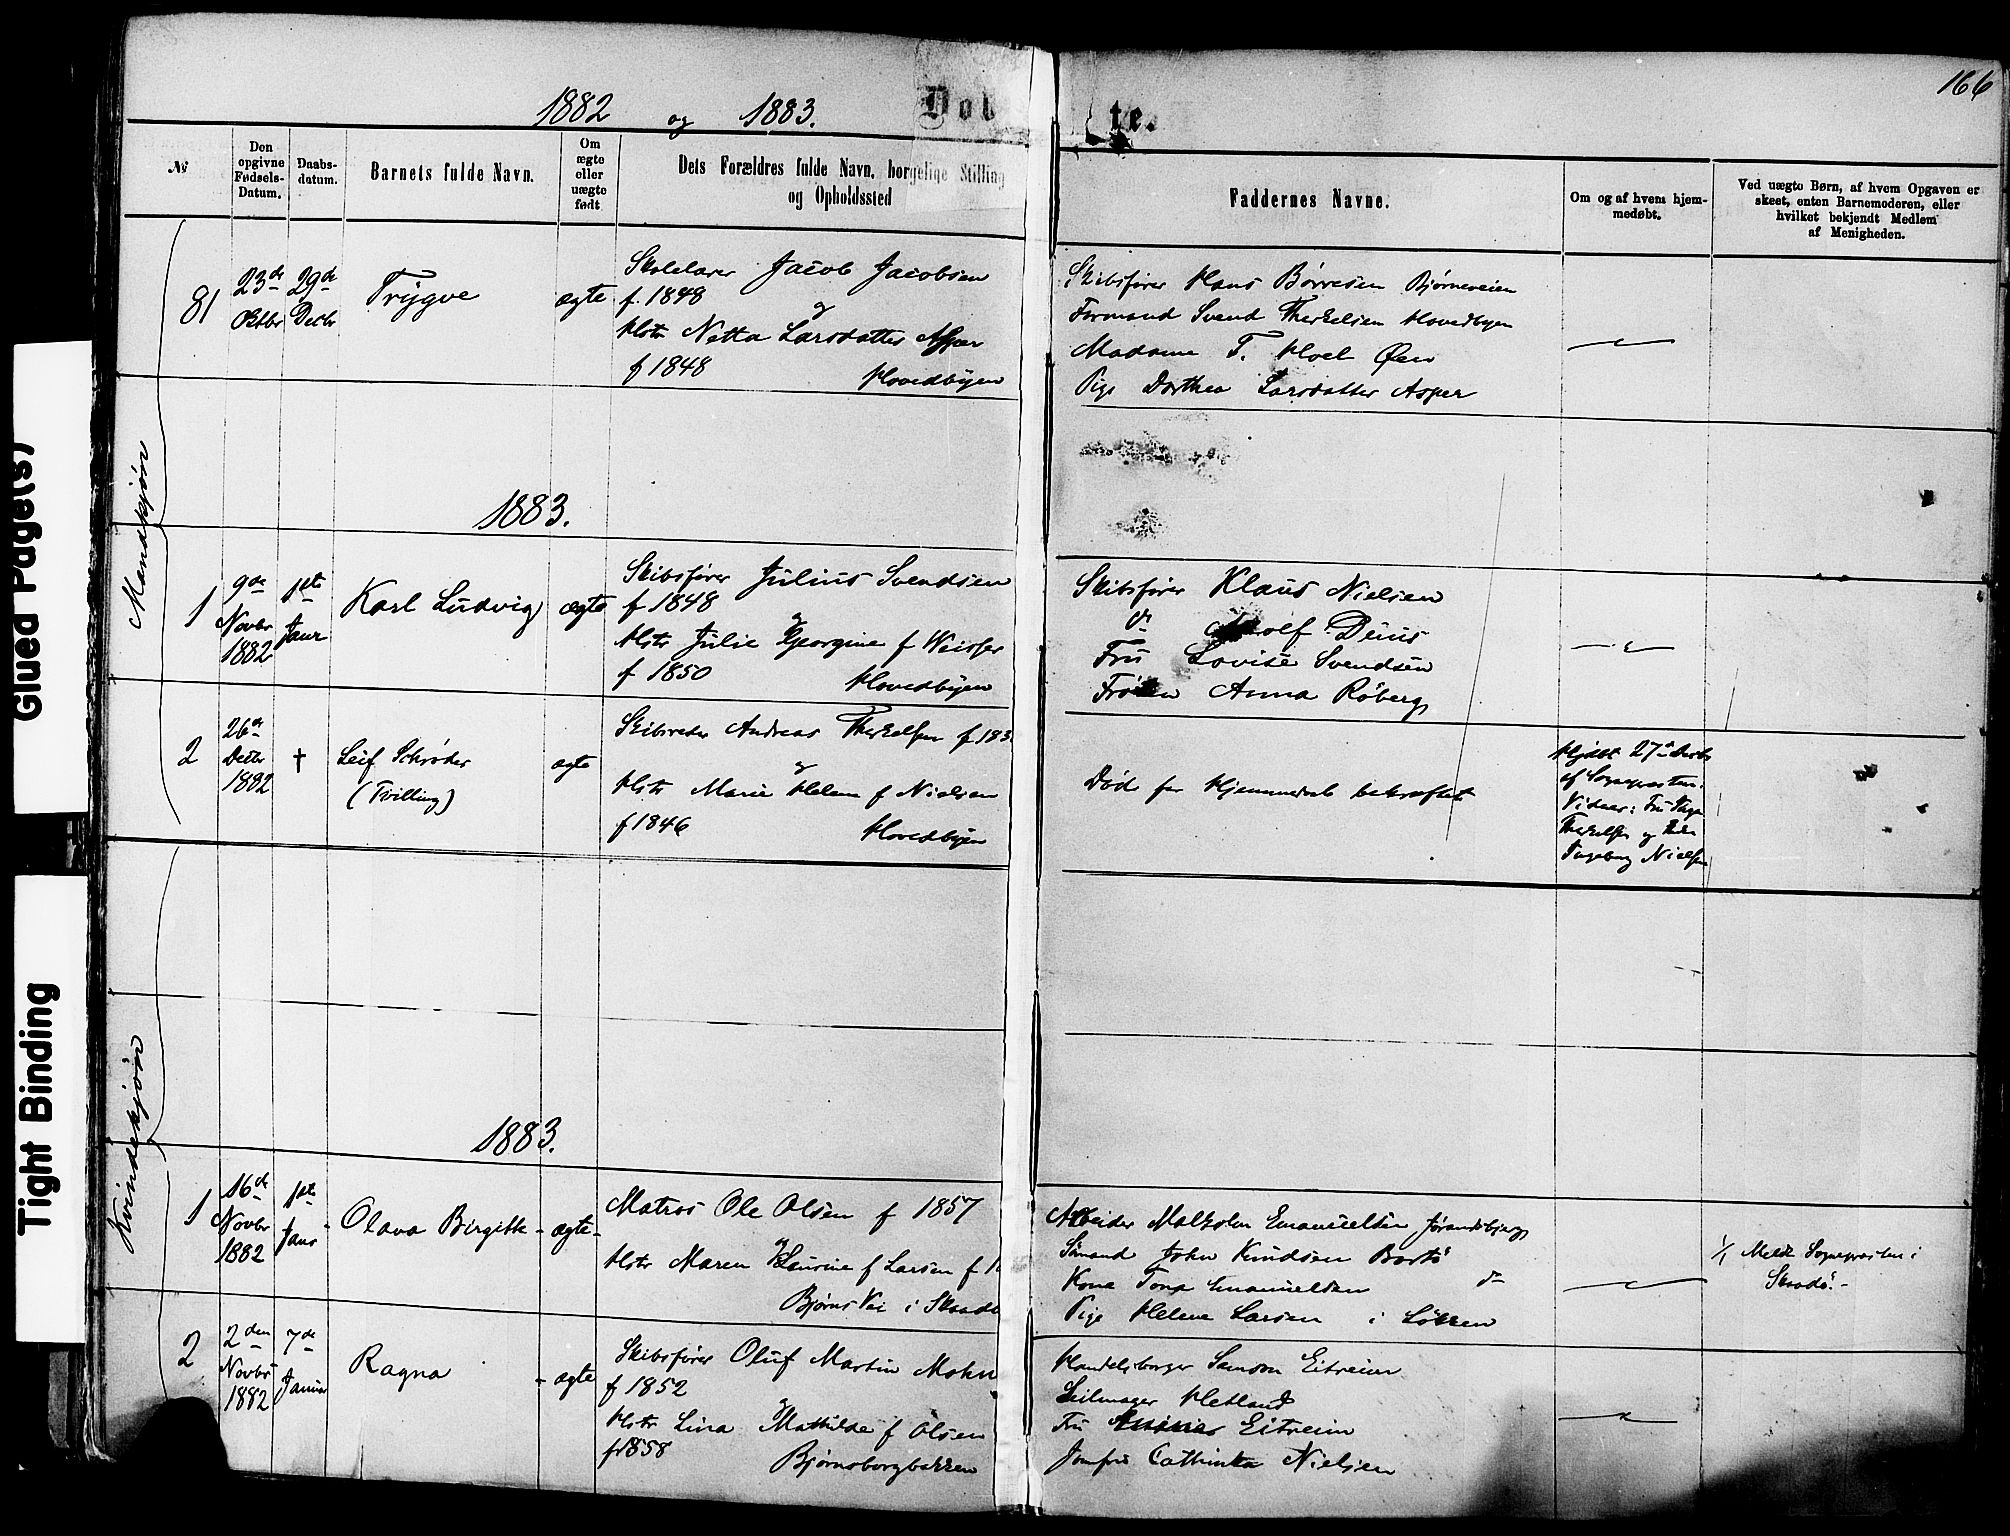 166
1882 og 1883.
Døbte.
№
Den opgivne Fødsels-Datum.
Daabs-datum.
Barnets fulde Navn.
Om ægte eller uægte født
Dets Forældres fulde Navn, borgelige Stilling og Opholdssted
Faddernes Navne.
Om og af hvem hjem-medøbt.
Ved uægte Børn, af hvem Opgaven er skeet, enten Barnemoderen, eller hvilket bekjendt Medlem af Menigheden.
Mandkjøn
81
23de Octbr
29de Decbr
Trygve
ægte
Skolelærer Jacob Jacobsen
f. 1848
og
Hstr Netta Larsdatter Asper
f 1848 Hovedbyen
Skibsfører Hans Børresen Bjørneveien
Formand Svend Therkelsen Hovedbyen
Madame T. Hoel Øen
Pige Dorthea Larsdatter Asper
1883.
1
9de Novbr 1882
1ste Janr
Karl Ludvig
ægte
Skibsfører Julius Svendsen
f 1848
og
Hstr Julie Georgine f Weisser
f 1850 Hovedbyen
Skibsfører Klaus Nielsen
do
Fru Lovise Svendsen
Frøken Anna Røberg
2
26de Decbr 1882
†
Leif Schrøder
(Tvilling)
ægte
Skibsreder Andreas Therkelsen f 183
og
Hstr Marie Helene f Nielsen
f 1846 Hovedbyen
Død før Hjemmedaab bekræftet
Hjdbt 27de Decbr
af Sognepresten.
Vidner: Fru
Therkelsen og
Ingeborg Nielsen
Kvindekjøn
1883.
1
16de Novbr 1882
1ste Janr
Olava Birgitte
ægte
Matros Ole Olsen f 1857
og
Hstr Maren Laurine f Larsen f 1
Bjørns Vei i Skaadø
Arbeider Malkolm Emanuelsen Jørandsbjerg
Sömand John Knudsen Bortö
Kone Tona Emanuelsen do
Pige Helene Larsen i Lökken
1/1 Meldt Sognepresten i
Skaadö.
2
2den Novbr 1882
7de Januar
Ragna
ægte
Skibsfører Oluf Martin Mohn
f 1852
og
Hstr Lina Mathilde f Olsen
f 1858
Bjørnsborgbakken
Handelsborger Samson Eitreim
Seilmager Hetland
Fru Eitreim
Jomfru Cathinka Nielsen
Glued Page(s)
Tight Binding